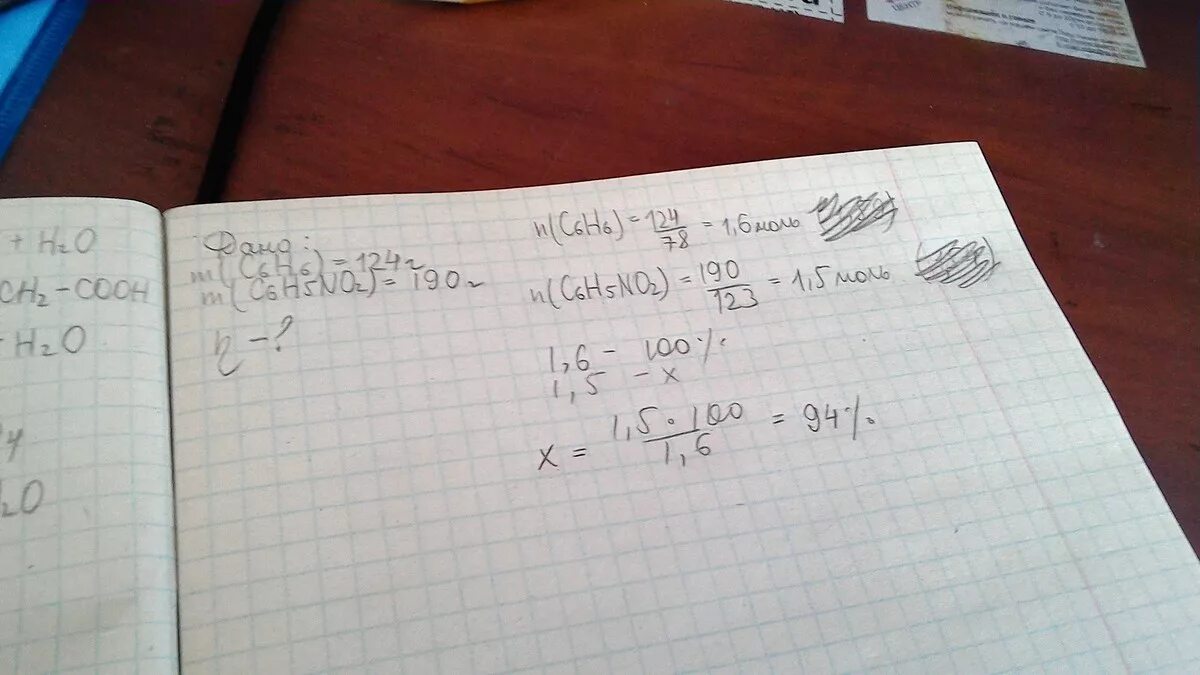 + H2O
CH2-COOH
H2O
2O
Дано:
m(C6H6) = 124г
m(C6H5NO2) = 190г
η - ?
n(C6H6) = 124/78 = 1,6 моль
n(C6H5NO2) = 190/123 = 1,5 моль
1,6 - 100%
1,5 - x
x = 1,5 • 100/1,6 = 94%